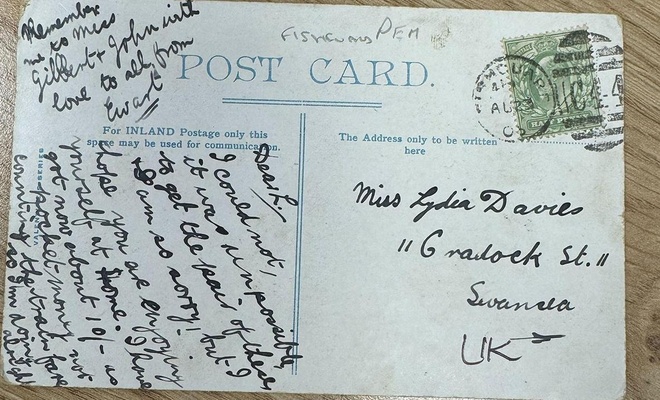 Remember
me to Miss
Gilbert & John with
love to all from
Ewart
FISHGUARD PEM
POST CARD.
For INLAND Postage only this
space may be used for communication.
The Address only to be written
here
SERIES
Dear L,
I could not,
it was impossible,
to get the pair of these,
I am so sorry! but I
hope you are enjoying
yourself at home. I have
got now about 10/- as
pocket money not
counting the train fare
so I'm doing
alright
AU 23
Miss Lydia Davies
11 Cradock St.
Swansea
UK